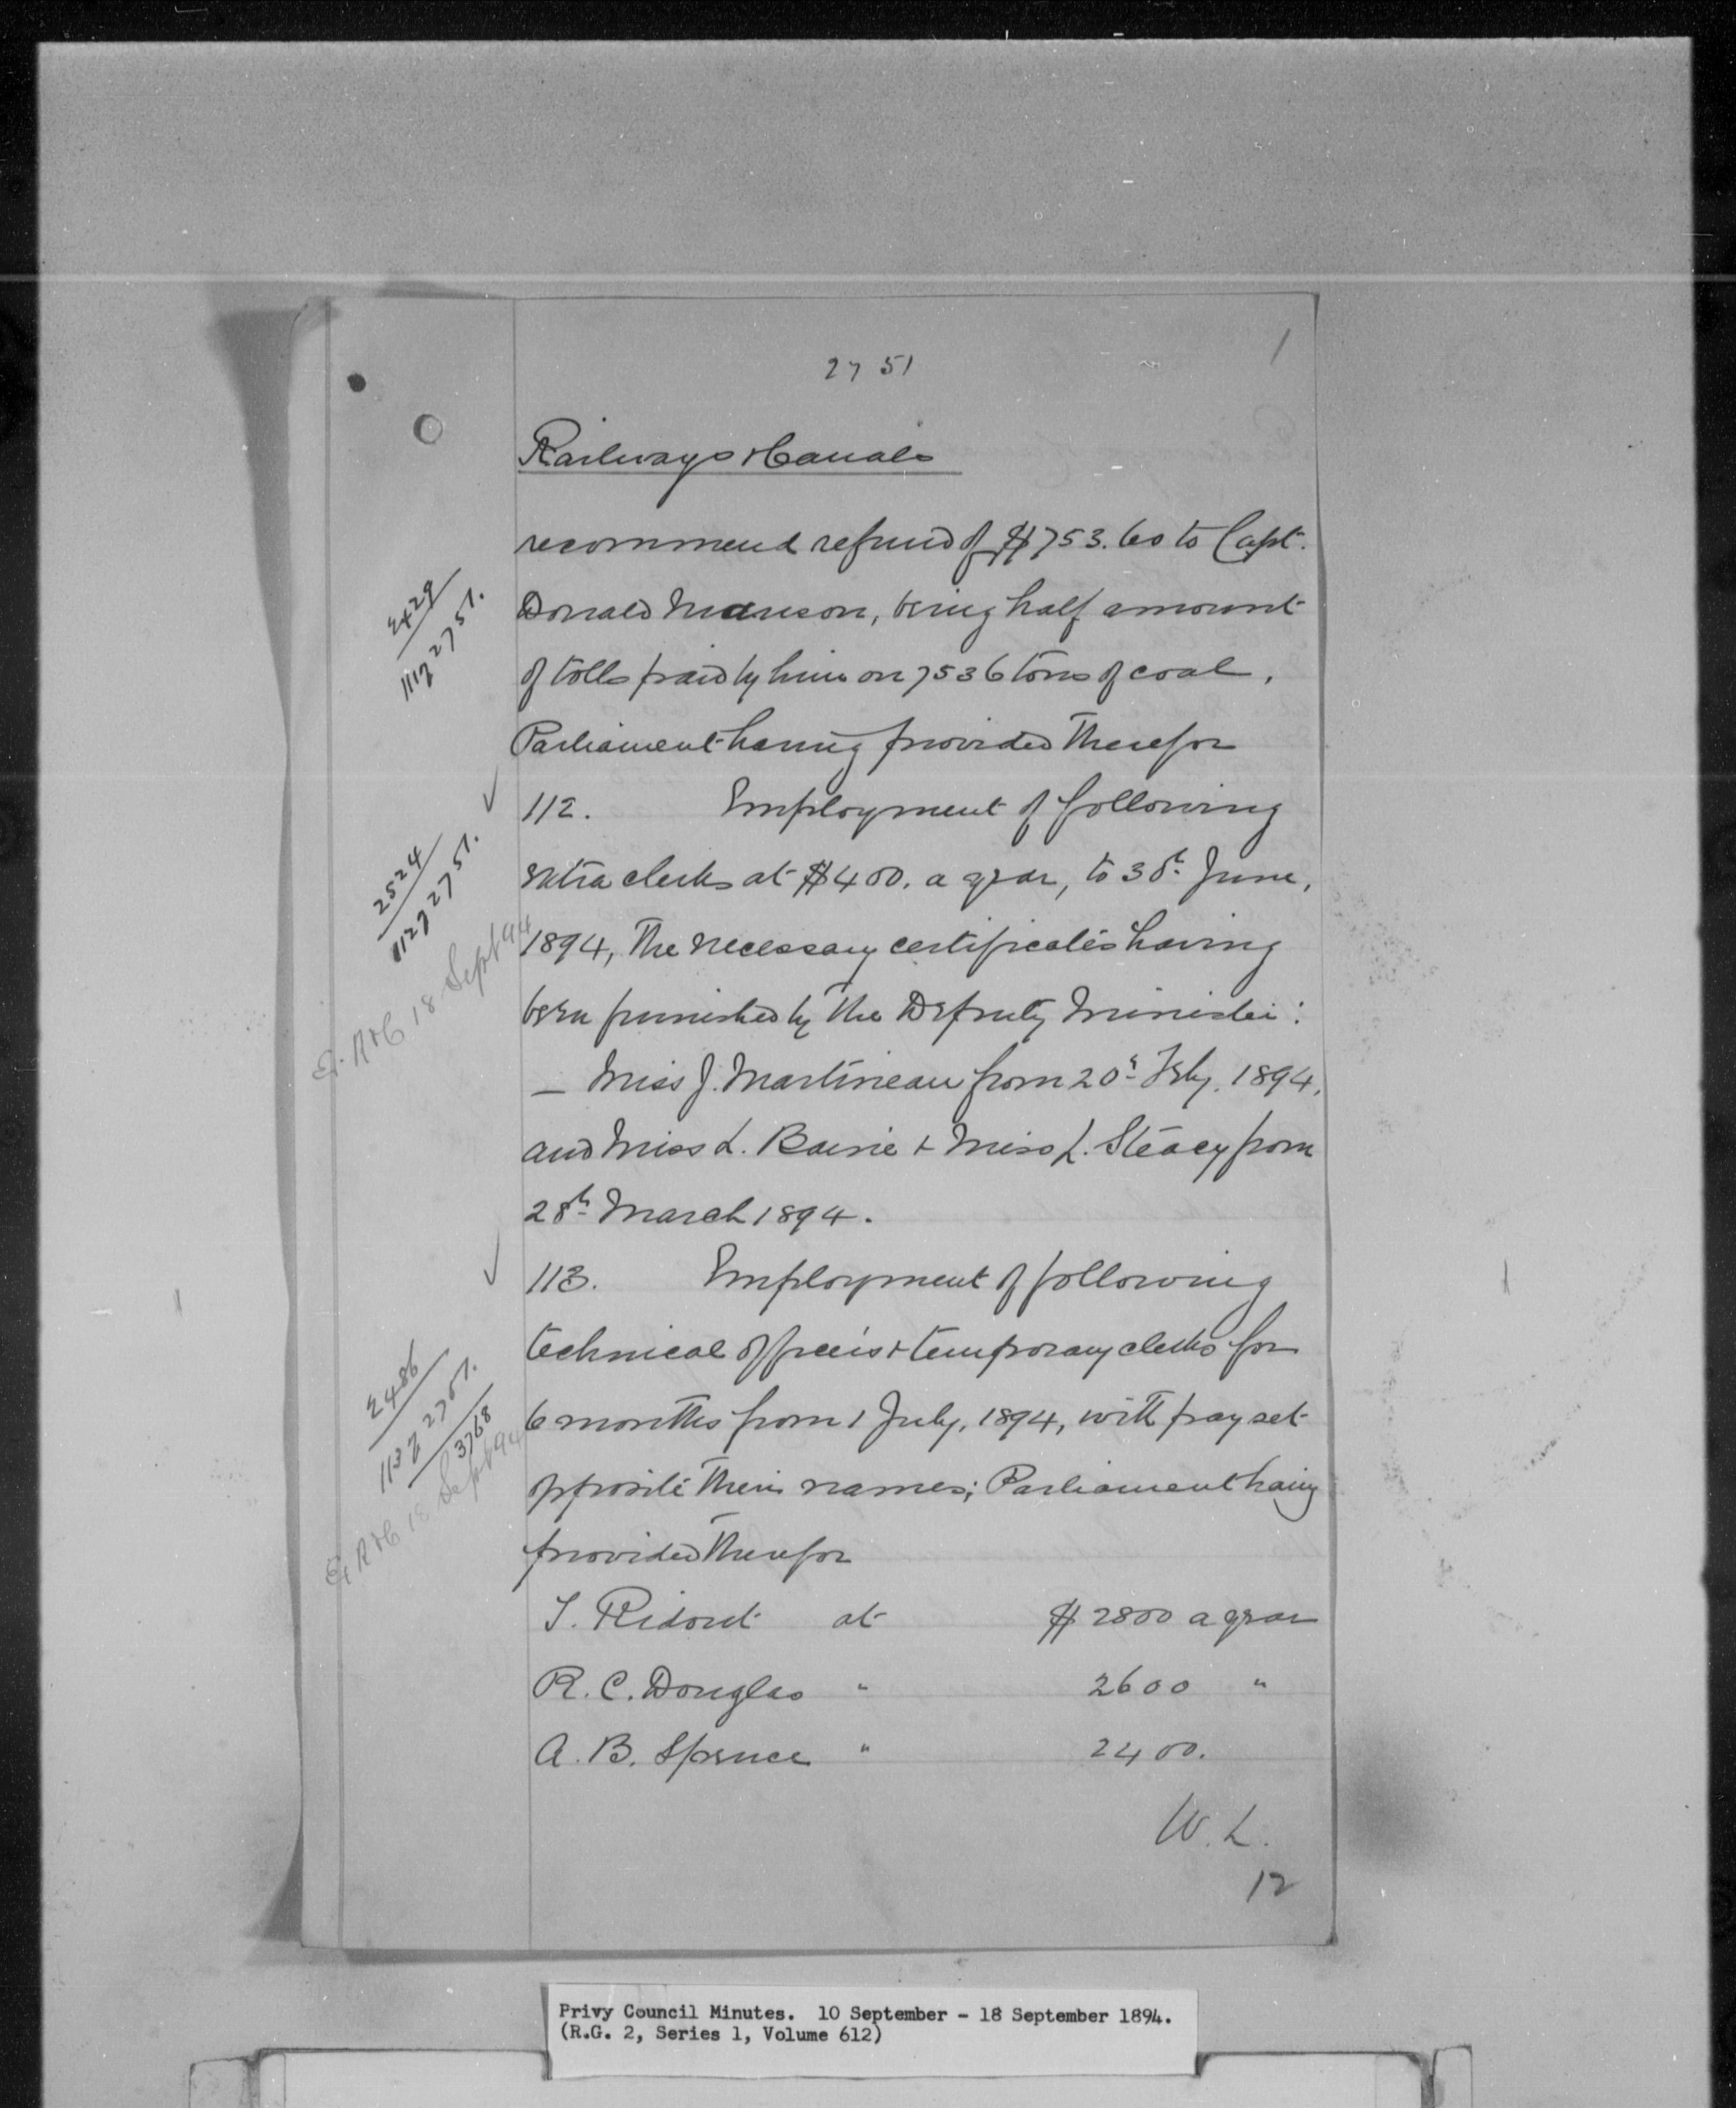 2751
1
Railways & Canals
recommend refund of $753.60 to Capt.
Donald Manson, being half amount
of tolls paid by him on 7536 tons of coal,
Parliament having provided therefor
2429
111g 2751.
112. Employment of following
extra clerks at $400. a year, to 30th June,
1894, the necessary certificates having
been furnished by the Deputy Minister:
— Miss J. Martineau from 20th Feby. 1894,
and Miss L. Barrie & Miss L. Steacy from
28th March 1894.
2524
112g 2751.
E. R & C 18 Sept 94
113. Employment of following
technical officers & temporary clerks for
6 months from 1 July, 1894, with pay set
opposite their names; Parliament having
provided therefor
2486
113g 2751.
3768
E. R & C 18 Sept 94
T. Ridout at $2800 a year
R. C. Douglas " 2600 "
A. B. Spence " 2400.
W. L.
12
Privy Council Minutes. 10 September - 18 September 1894.
(R.G. 2, Series 1, Volume 612)